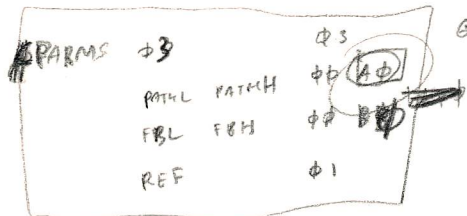 $PARMS ϕ3 ϕ3
PATHL PATHH ϕϕ Aϕ
FBL FBH ϕϕ Bϕ
REF ϕ1